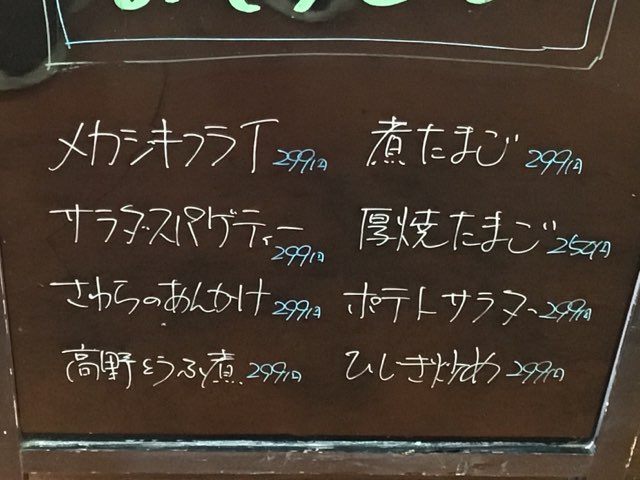 メカジキフライ 299円
煮たまご 299円
サラダスパゲティー 299円
厚焼たまご 250円
さわらのあんかけ 299円
ポテトサラダ 299円
高野とうふ煮 299円
ひじき炒め 299円